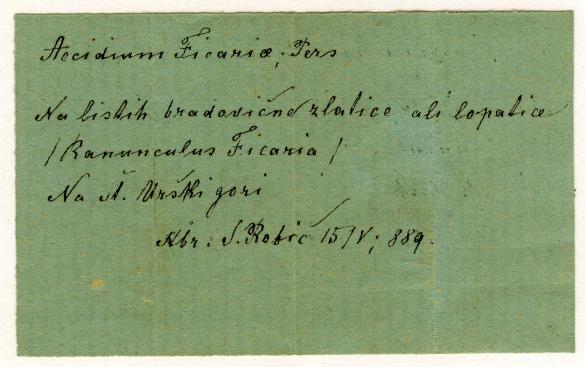 Aecidium Ficariæ, Pers
Na listih bradovične zlatice ali lopatice
/Ranunculus Ficaria/
Na št. Urški gori
Nbr: S. Robič 15/V; 889.